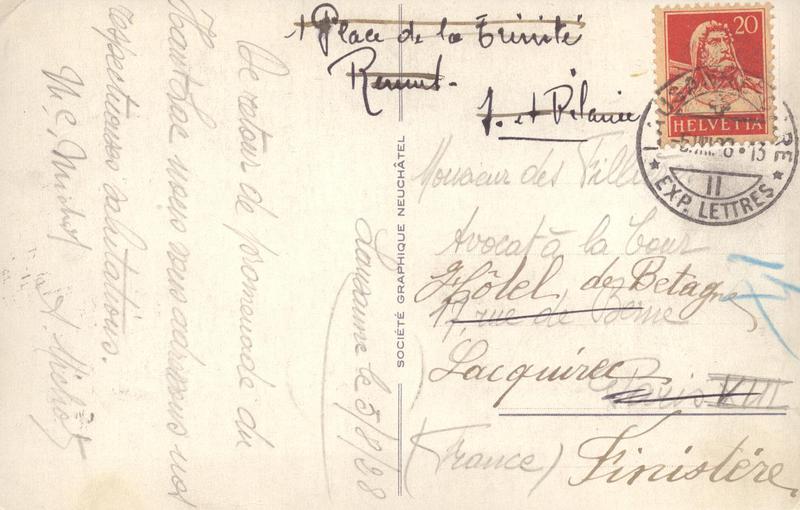 De retour de promenade du
Haut Lac nous vous adressons nos
respectueuses salutations.
M. C. Michot
A. Michot
Lausanne le 5/8/28
SOCIÉTÉ GRAPHIQUE NEUCHÂTEL
1 Place de la Trinité
20
HELVETIA
EXP. LETTRES
II
13
Monsieur des
Avocat à la Cour
Hôtel de Betagne
17, rue de Berne
Locquirec
Paris VIII
(France) Finistère